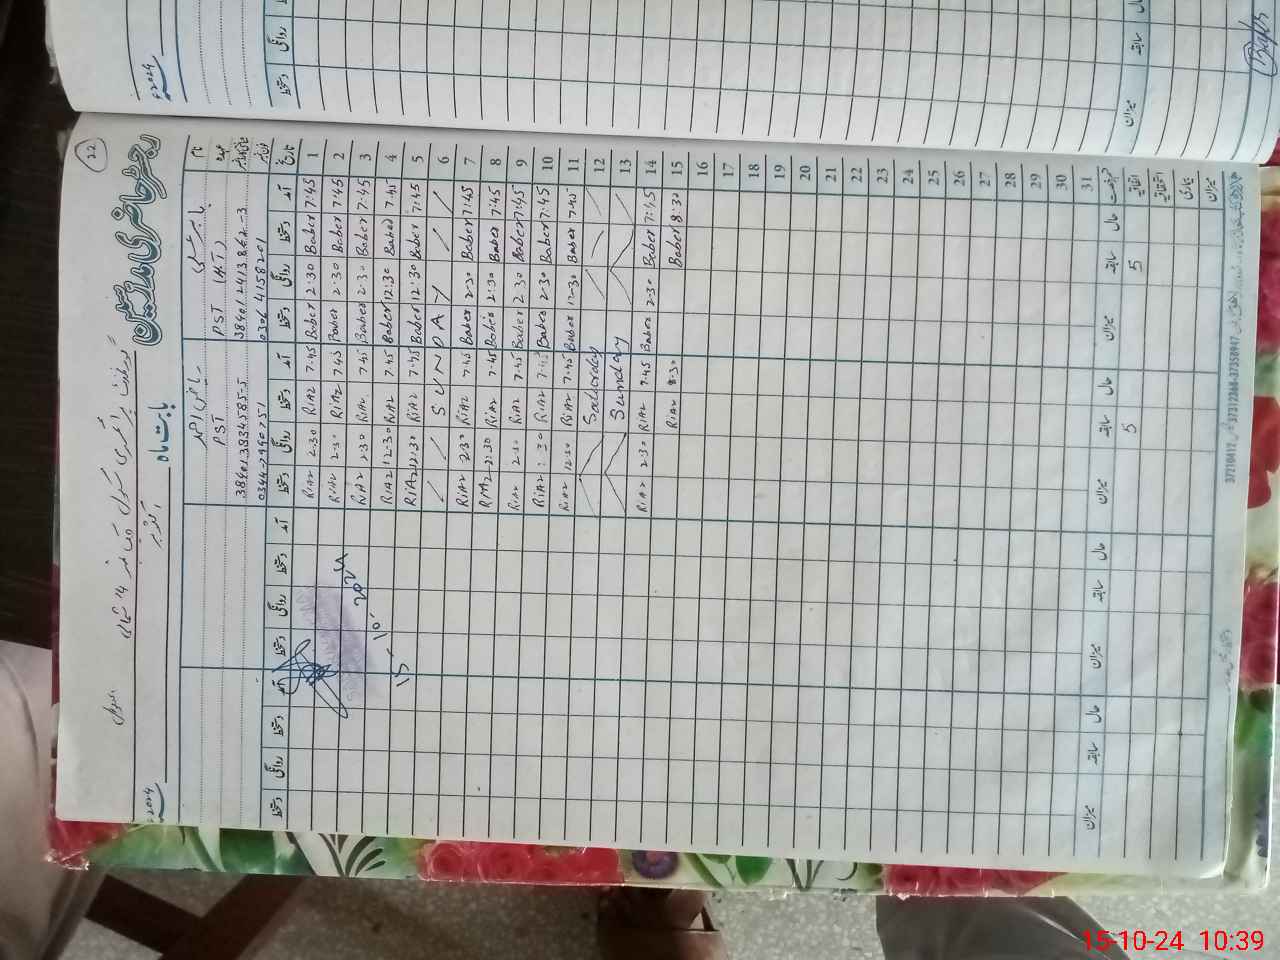 22
رجسٹر حاضری ملازمین
گورنمنٹ پرائمری سکول
بابت ماہ اکتوبر 2024ء
نام بابر علی ریاض احمد
عہدہ PST (HT) PST
38401 2413862-3 38401 3834585-5
0306 4158201
تاریخ آمد دستخط روانگی دستخط آمد دستخط روانگی دستخط آمد دستخط روانگی دستخط آمد دستخط روانگی دستخط
1 7:45 Baber 2:30 Baber 7:45 RiAz 2:30 RiAz
2 7:45 Baber 2:30 Baber 7:45 RiAz 2:30 RiAz
3 7:45 Baber 2:30 Baber 7:45 RiAz 2:30 RiAz
4 7:45 Baber 12:30 Baber 7:45 RiAz 12:30 RiAz
5 7:45 Baber 12:30 Baber 7:45 RiAz 12:30 RiAz
6 S U N D A Y
7 7:45 Baber 2:30 Baber 7:45 RiAz 2:30 RiAz
8 7:45 Baber 2:30 Baber 7:45 RiAz 2:30 RiAz
9 7:45 Baber 2:30 Baber 7:45 RiAz 2:30 RiAz
10 7:45 Baber 2:30 Baber 7:45 RiAz 2:30 RiAz
11 7:45 Baber 12:30 Baber 7:45 RiAz 12:30 RiAz
12 Saturday
13 Sunday
14 7:45 Baber 2:30 Baber 7:45 RiAz 2:30 RiAz
15 8:30 Baber 8:30 RiAz
16
17
18
19
20
21
22
23
24
25
26
27
28
29
30
31
حال سابقہ میزان حال سابقہ میزان حال سابقہ میزان حال سابقہ میزان
اتفاقیہ 5 5
بیماری
میزان
37210412 37312368-37358947
2024ء
روانگی دستخط
سابقہ میزان
15-10-24 10:39